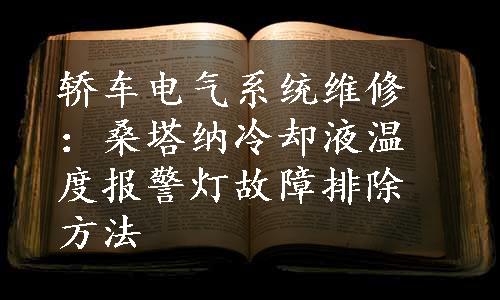 轿车电气系统维修
：桑塔纳冷却液温
度报警灯故障排除
方法